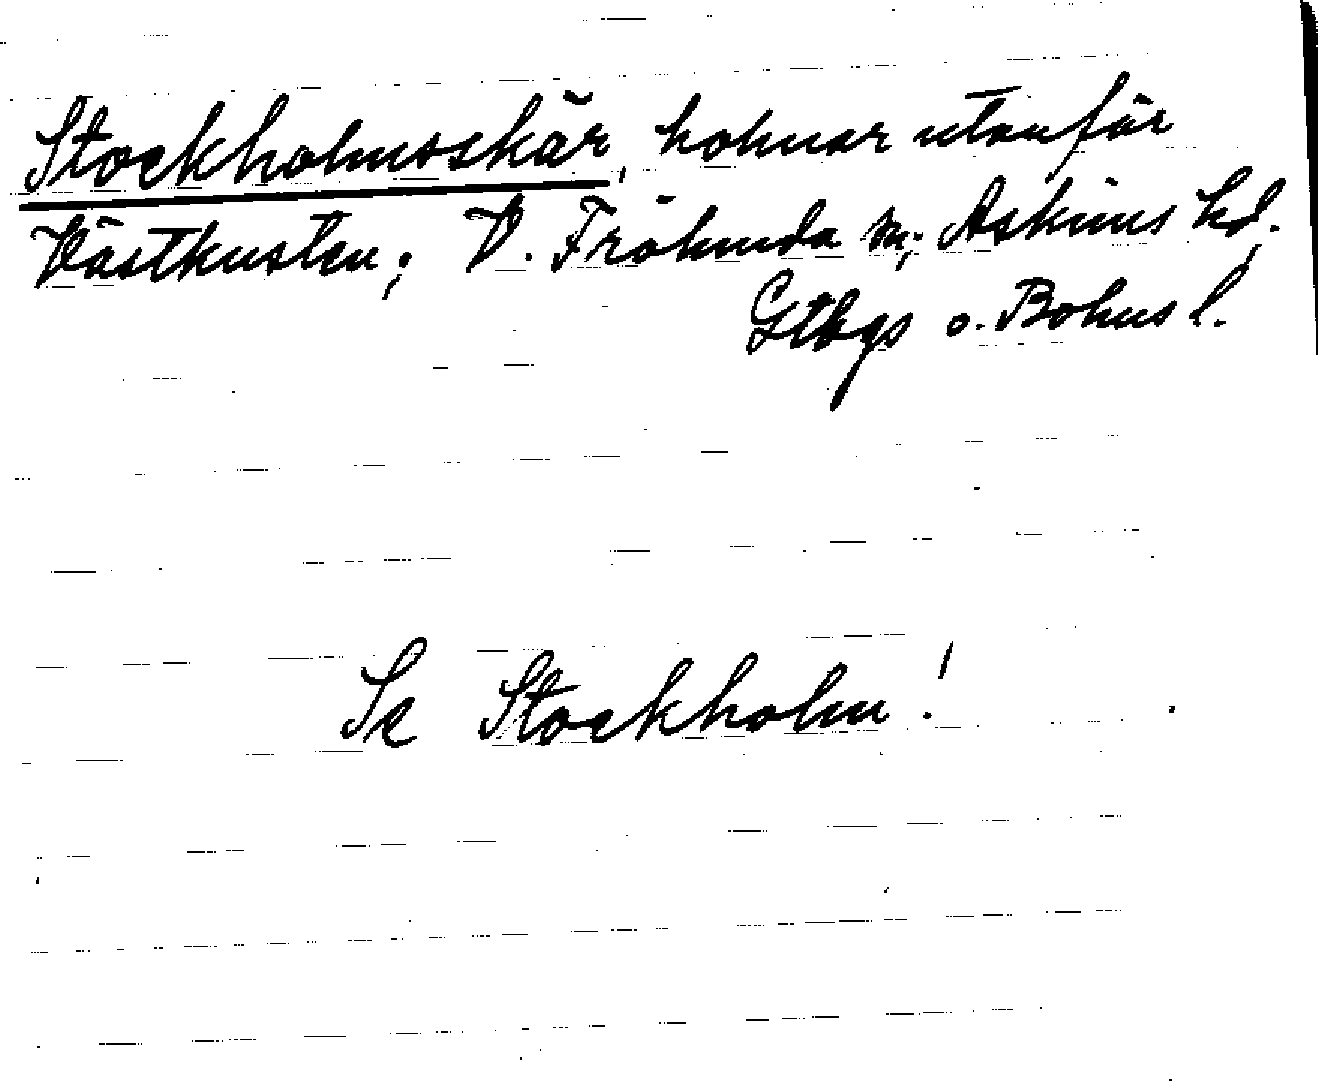 Stockholmsskär, holmar utanför
Västkusten; V. Frölunda sn; Askims hd,
Gtbgs o. Bohus l.
Se Stockholm!